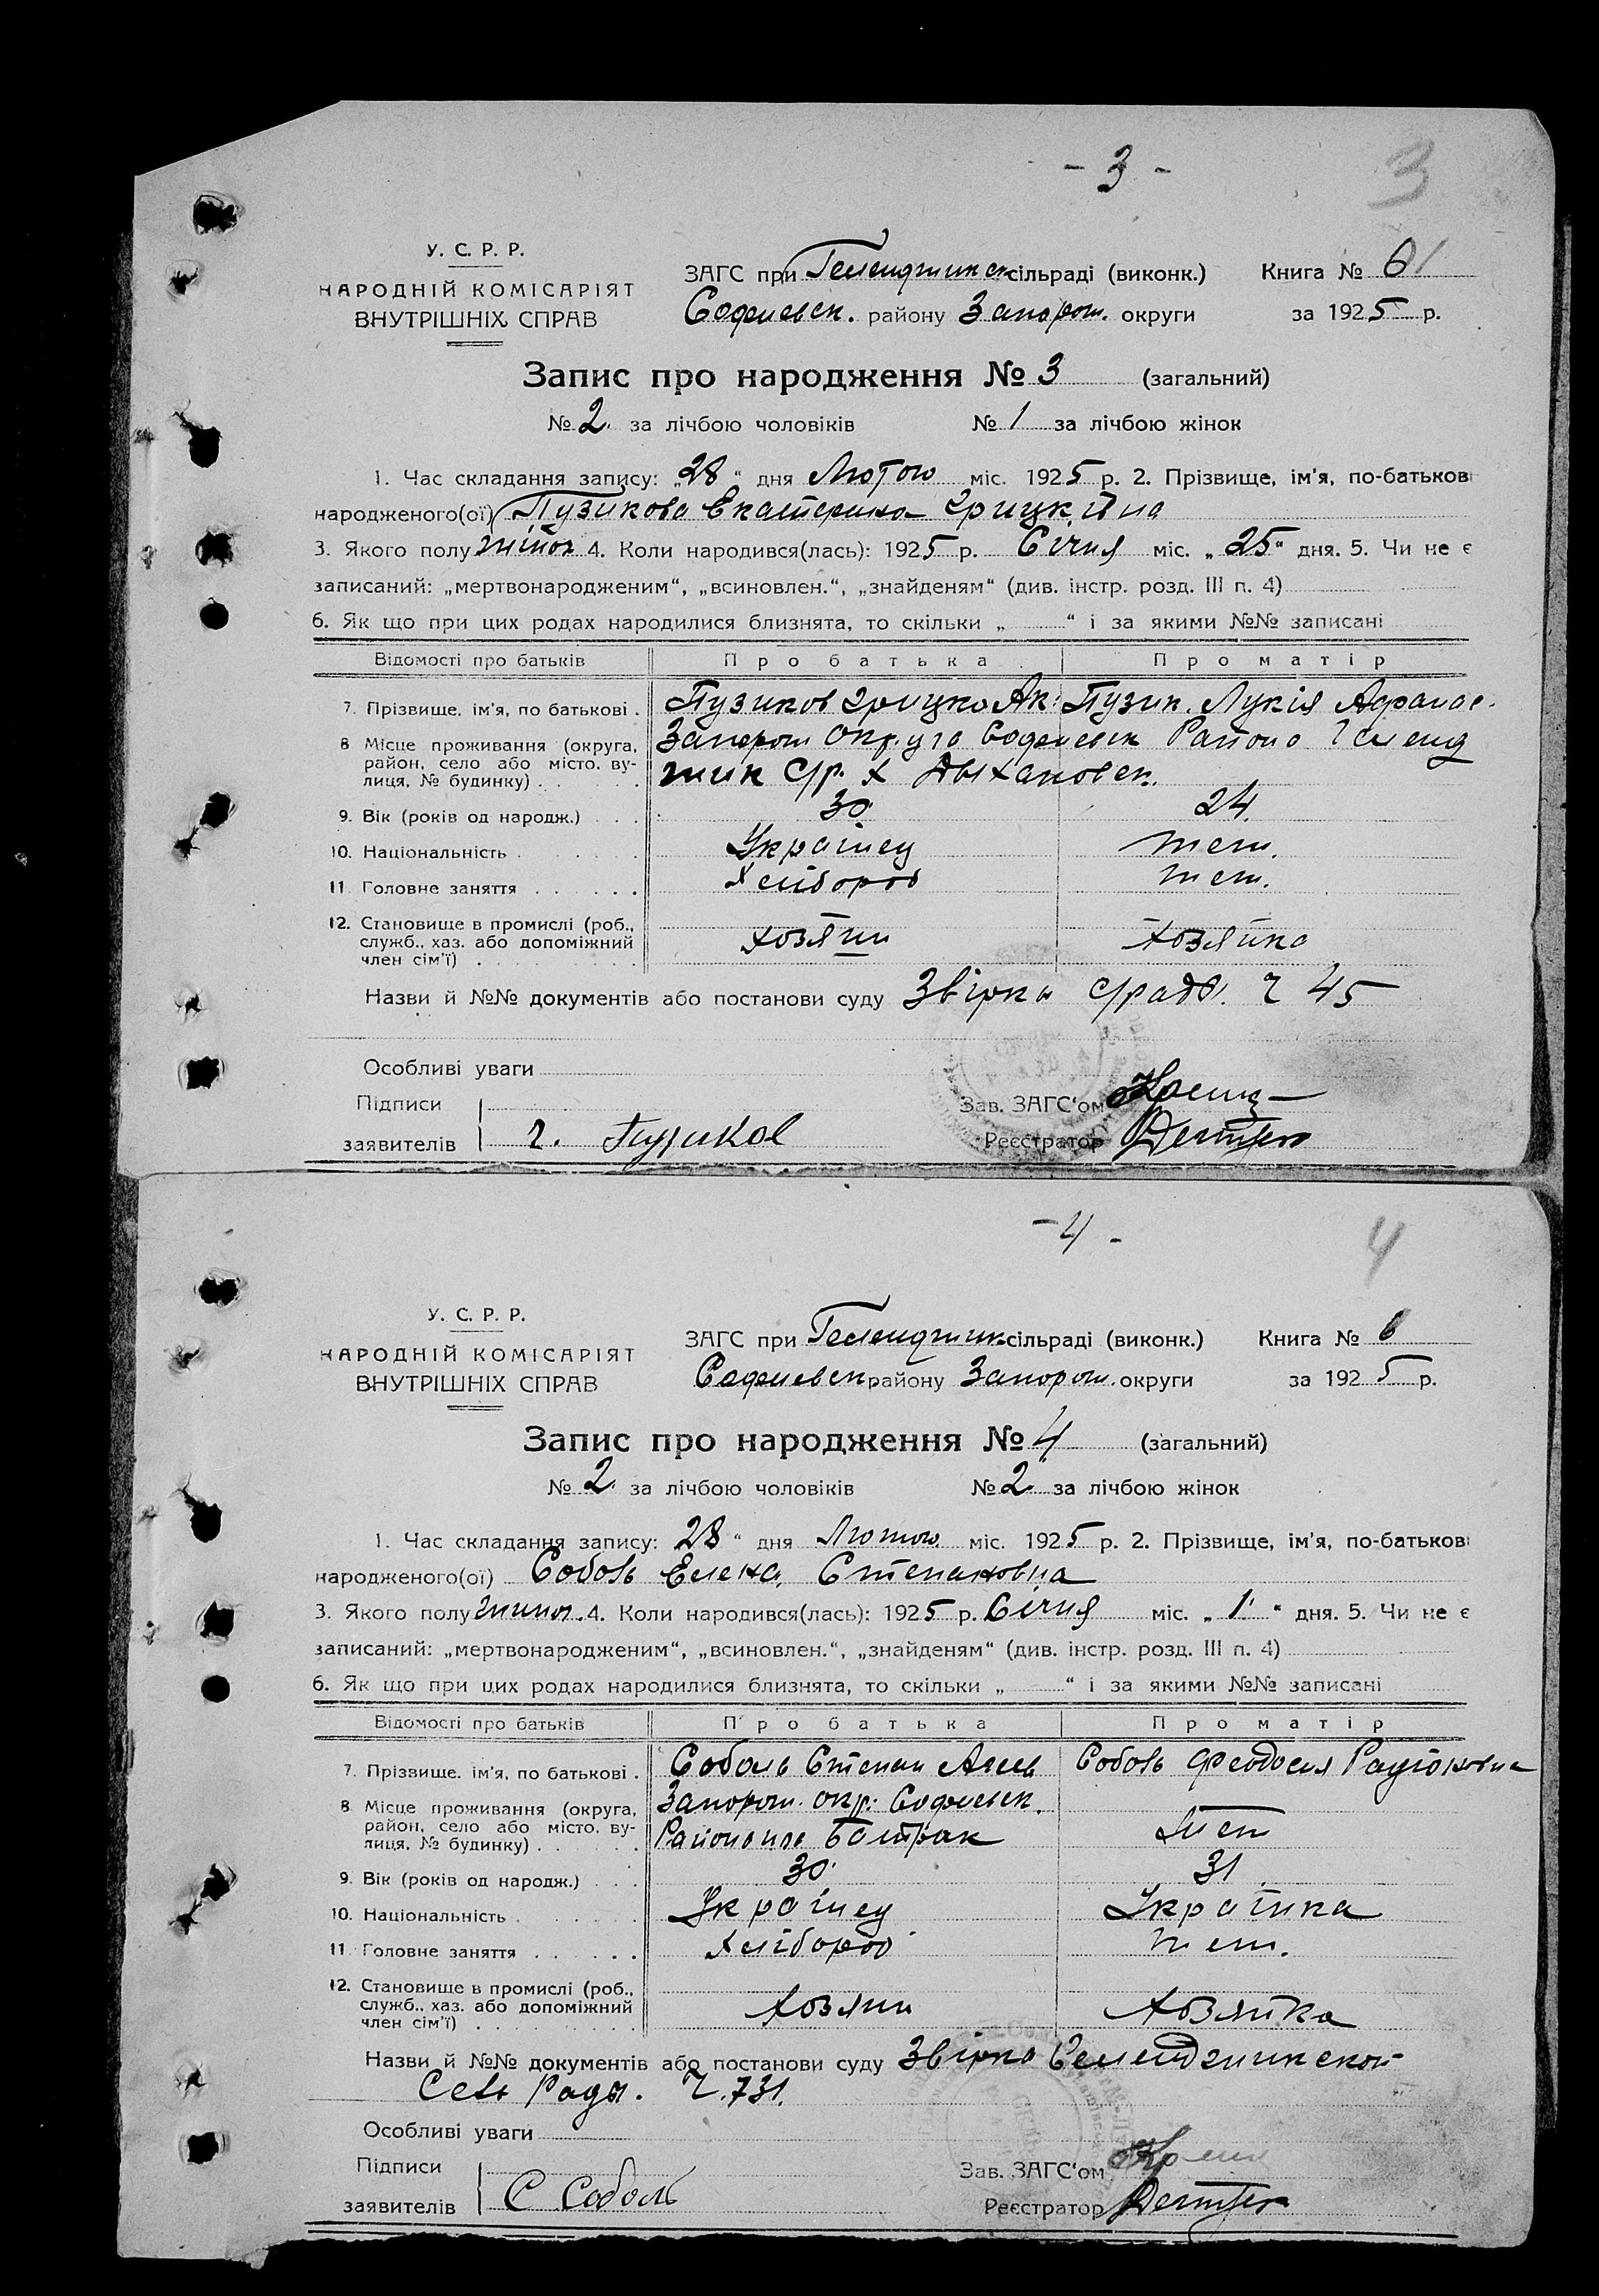 - 3 -
3
У. С. Р. Р.
НАРОДНІЙ КОМІСАРІЯТ
ВНУТРІШНІХ СПРАВ
ЗАГС при сільраді (виконк.) Книга № 6
Софиевск. району Запорож. округи за 1925 р.
Запис про народження № 3 (загальний)
№ 2. за лічбою чоловіків № 1 за лічбою жінок
1. Час складання запису: „28“ дня Лютого міс. 1925 р. 2. Прізвище, ім'я, по-батькові
народженого(ої) Пузикова Екатерина Грицківна
3. Якого полу жіноч. 4. Коли народився(лась): 1925 р. Січня міс. „25“ дня. 5. Чи не є
записаний: „мертвонародженим“, „всиновлен.“, „знайденям“ (див. інстр. розд. III п. 4)
6. Як що при цих родах народилися близнята, то скільки „ “ і за якими №№ записані
Відомості про батьків Про батька Про матір
7. Прізвище, ім'я, по батькові . Пузиков Грицко Ак. Пузик. Лукія Афанас.
8. Місце проживання (округа, район, село або місто, вулиця, № будинку) Запорож Округа Софиевск Району
9. Вік (років од народж.) . . . 30 24
10. Національність . . . Українец теж.
11. Головне заняття . . . . . . Хлібороб теж.
12. Становище в промислі (роб., служб., хаз. або допоміжний член сім'ї) хозяин хозяйка
Назви й №№ документів або постанови суду Звірка с/рады. Ч 45
Особливі уваги
Підписи
заявителів Г. Пузиков
Зав. ЗАГС'ом
Реєстратор
- 4 -
4
У. С. Р. Р.
НАРОДНІЙ КОМІСАРІЯТ
ВНУТРІШНІХ СПРАВ
ЗАГС при сільраді (виконк.) Книга № 6
Софиевск. району Запорож. округи за 1925 р.
Запис про народження № 4 (загальний)
№ 2. за лічбою чоловіків № 2. за лічбою жінок
1. Час складання запису: 28“ дня Лютого міс. 1925 р. 2. Прізвище, ім'я, по-батькові
народженого(ої) Соболь Елена Степановна
3. Якого полу жиноч. 4. Коли народився(лась): 1925 р. Січня міс. „1“ дня. 5. Чи не є
записаний: „мертвонародженим“, „всиновлен.“, „знайденям“ (див. інстр. розд. III п. 4)
6. Як що при цих родах народилися близнята, то скільки „ “ і за якими №№ записані
Відомості про батьків Про батька Про матір
7. Прізвище, ім'я, по батькові . Соболь Степан Соболь Феодосия
8. Місце проживання (округа, район, село або місто, вулиця, № будинку) Запорож. окр. Софиевск. Теж
9. Вік (років од народж.) . . . 30 31
10. Національність . . . Українец Українка
11. Головне заняття . . . . . . Хлібороб теж.
12. Становище в промислі (роб., служб., хаз. або допоміжний член сім'ї) Хозяин Хозяйка
Назви й №№ документів або постанови суду Звірка
Сель Рады. Ч. 731.
Особливі уваги
Підписи
заявителів С Соболь
Зав. ЗАГС'ом
Реєстратор